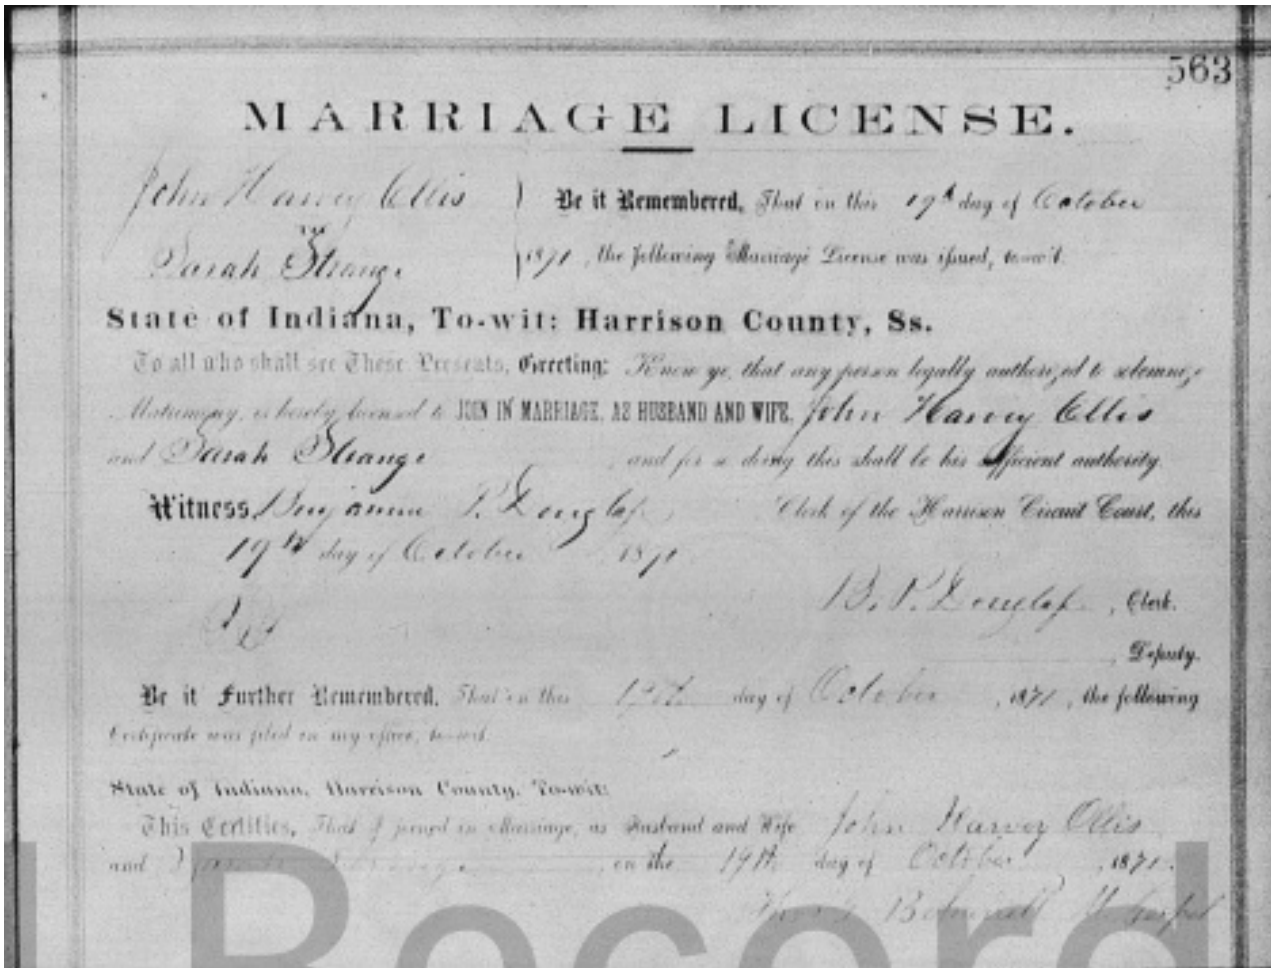 563
MARRIAGE LICENSE.
John Harvey Ellis
TO
Sarah Strange
Be it Remembered, That on this 19th day of October
1871, the following Marriage License was issued, to-wit:
State of Indiana, To-wit: Harrison County, Ss.
To all who shall see These Presents, Greeting: Know ye, that any person legally authorized to solemnize
Matrimony, is hereby licensed to JOIN IN MARRIAGE, AS HUSBAND AND WIFE, John Harvey Ellis
and Sarah Strange and for so doing this shall be his sufficient authority.
Witness, Benjamin P. Douglass Clerk of the Harrison Circuit Court, this
19th day of October 1871
B. P. Douglass, Clerk.
, Deputy.
Be it Further Remembered, That on this 19th day of October, 1871, the following
Certificate was filed in my office, to-wit:
State of Indiana, Harrison County, To-wit:
This Certifies, That I joined in Marriage, as Husband and Wife John Harvey Ellis
and Strange on the 19th day of October, 1871.
Record